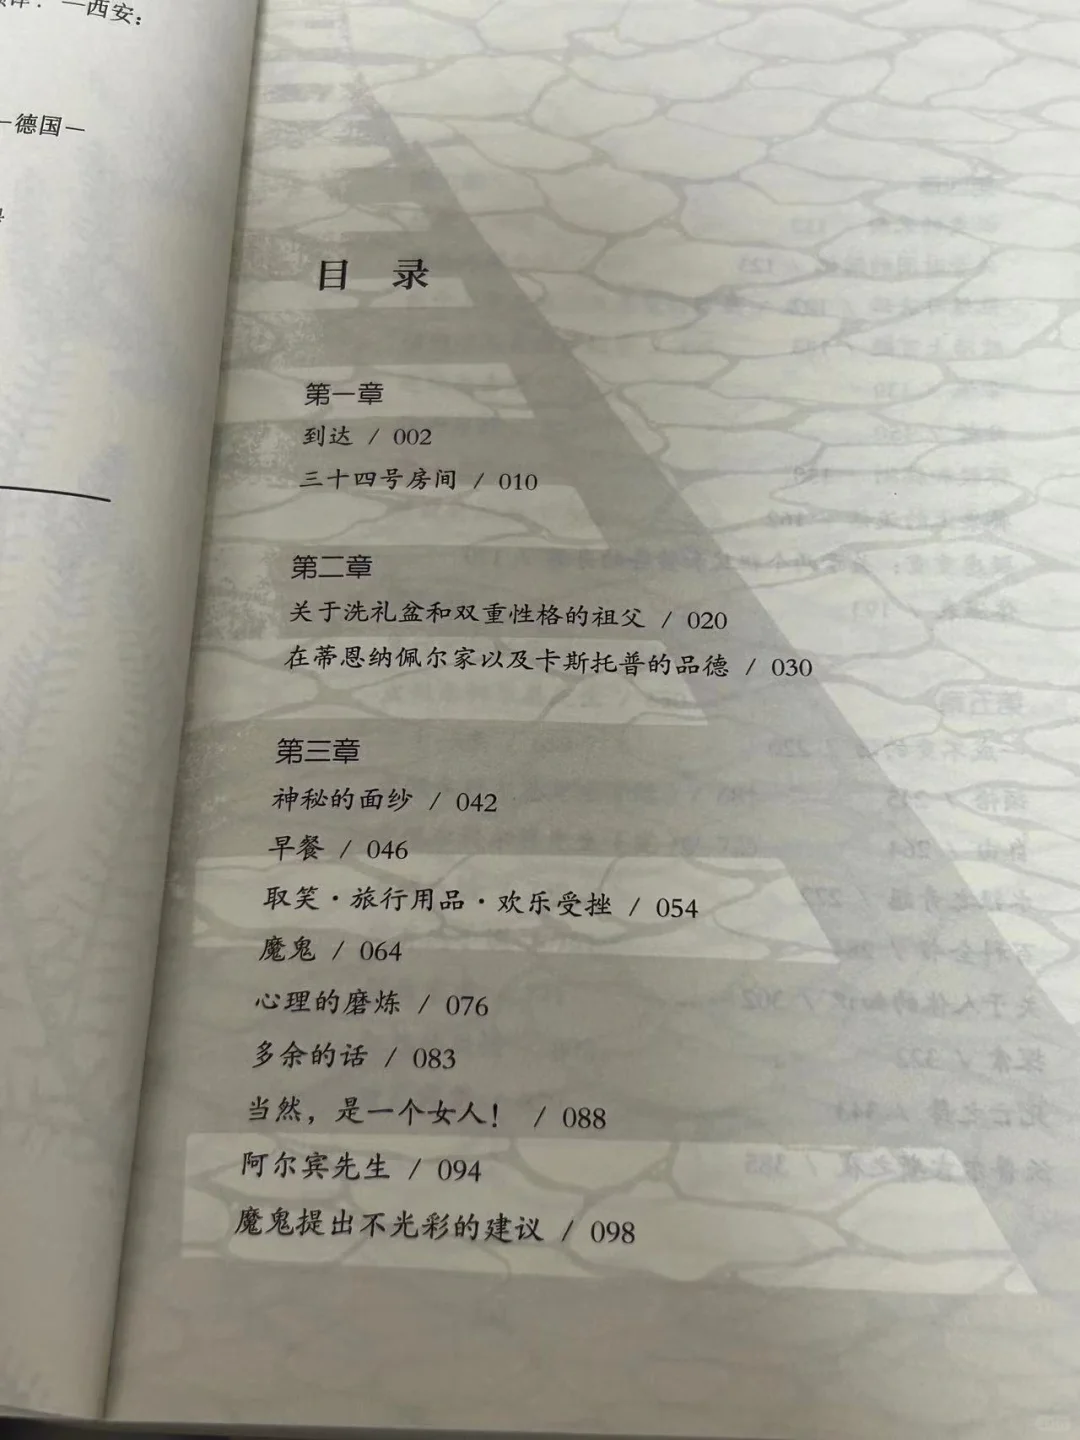 一西安：
—德国—
目 录
第一章
到达 / 002
三十四号房间 / 010
第二章
关于洗礼盆和双重性格的祖父 / 020
在蒂恩纳佩尔家以及卡斯托普的品德 / 030
第三章
神秘的面纱 / 042
早餐 / 046
取笑·旅行用品·欢乐受挫 / 054
魔鬼 / 064
心理的磨炼 / 076
多余的话 / 083
当然，是一个女人！ / 088
阿尔宾先生 / 094
魔鬼提出不光彩的建议 / 098